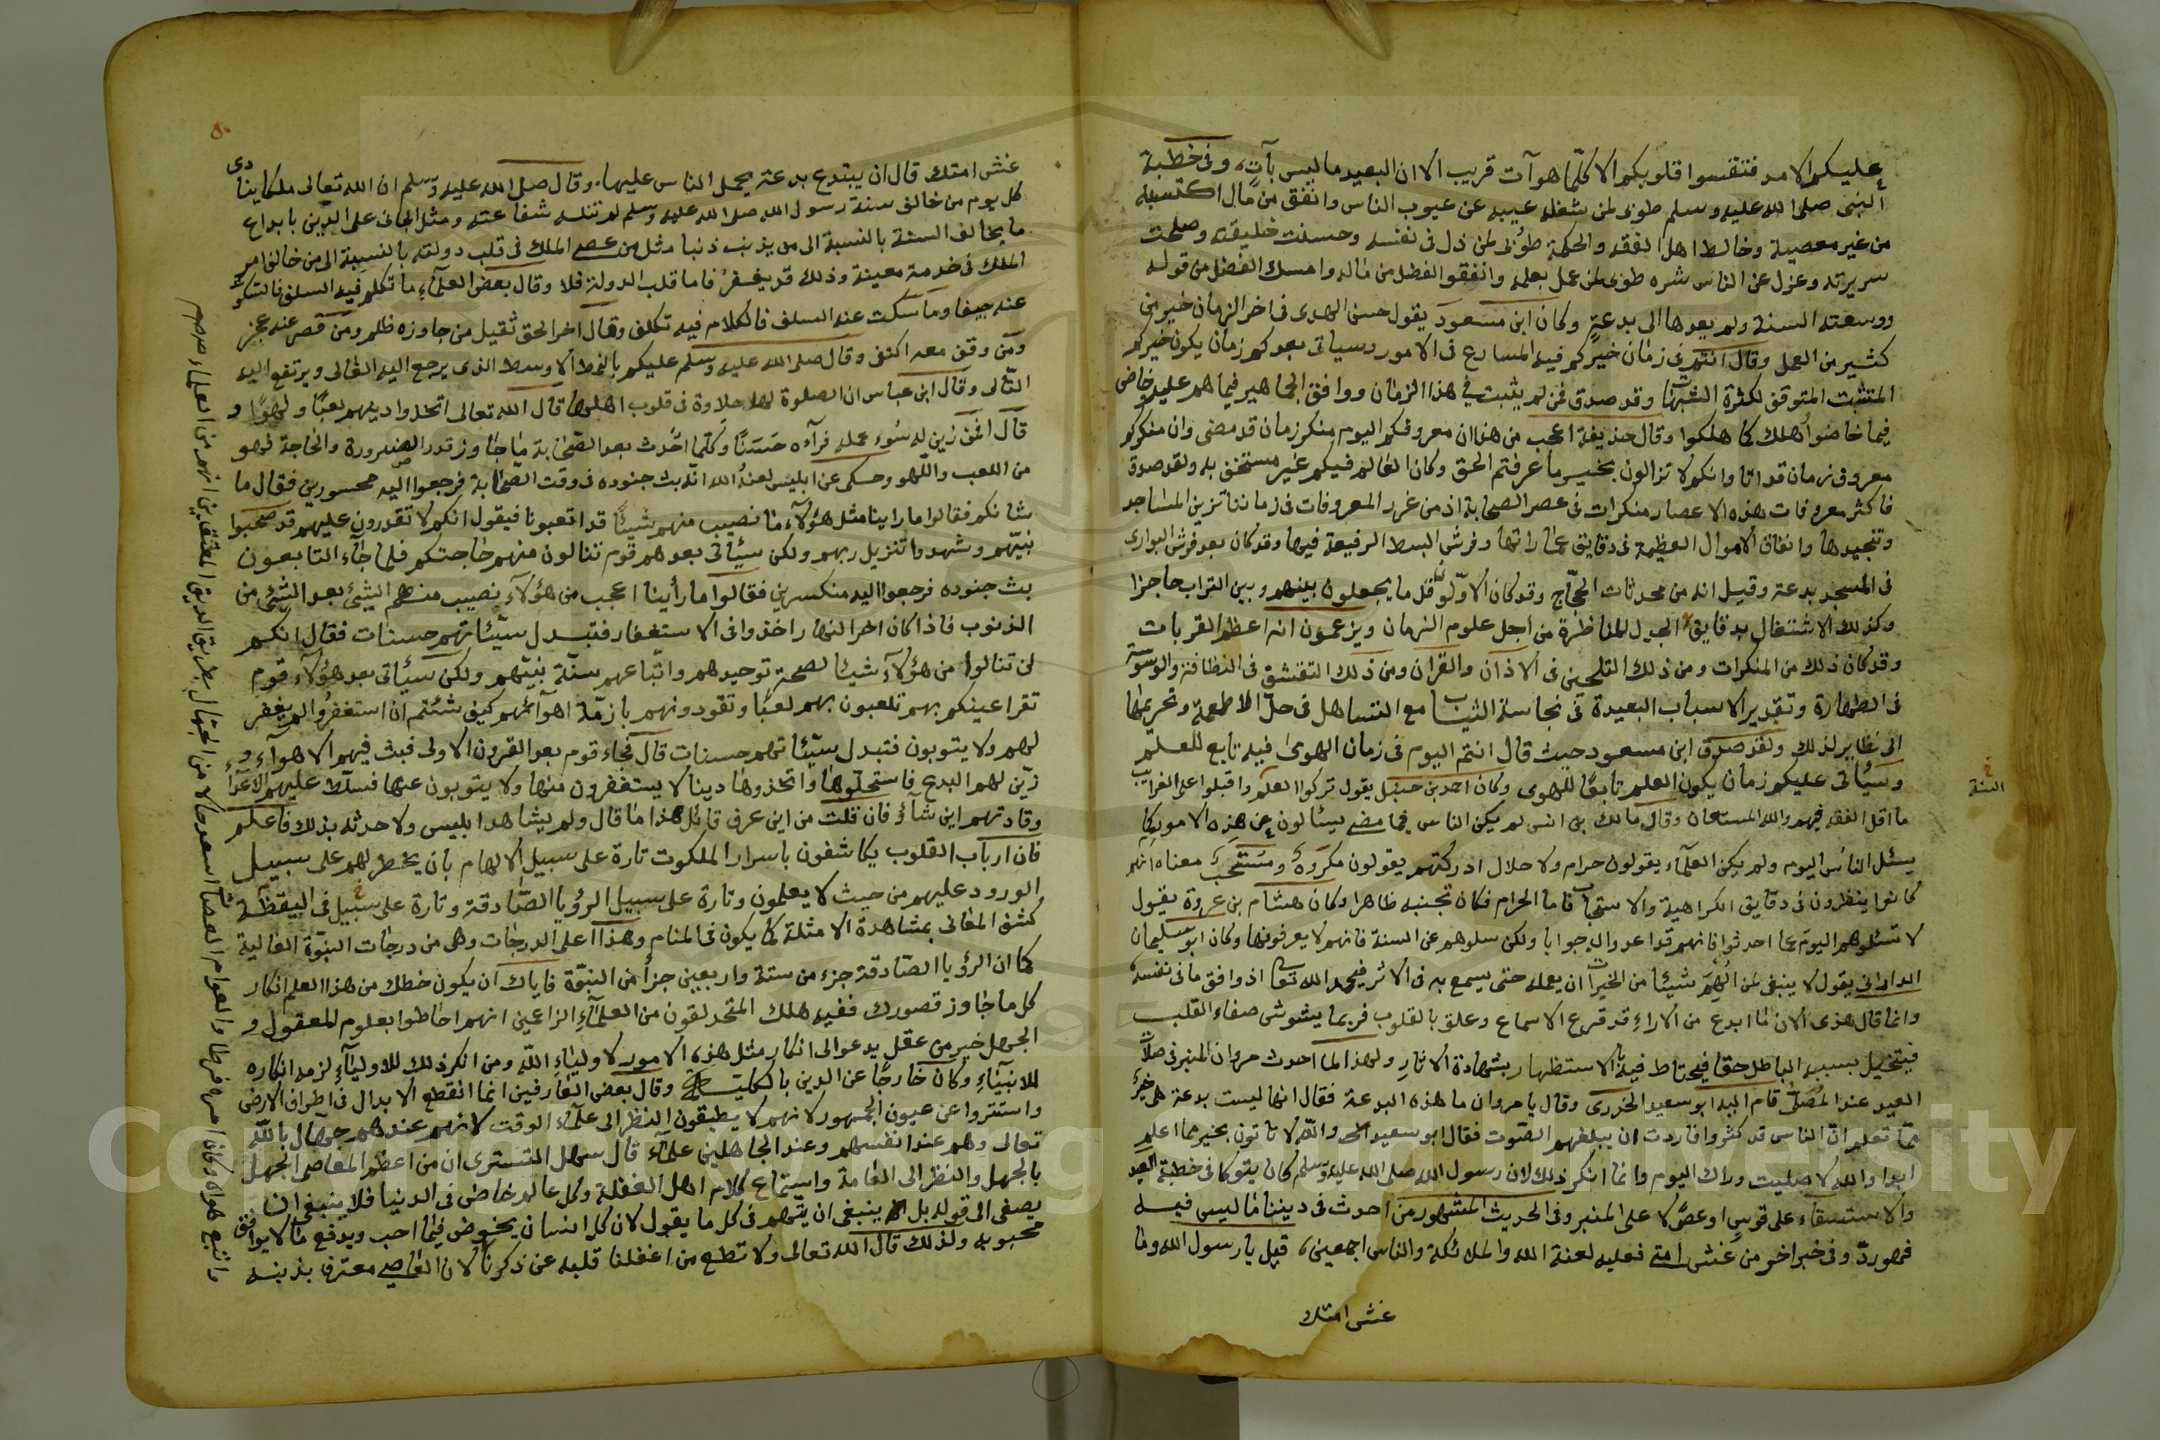 عليكم الامد فتقسوا قلوبكم الا كلما هو آت قريب الا ان البعيد ما ليس بآت، وفى خطبة
النبى صلى الله عليه وسلم طوبى لمن شغله عيبه عن عيوب الناس وانفق من مال اكتسبه
من غير معصية وخالط اهل الفقه والحكمة طوبى لمن ذل فى نفسه وحسنت خليقته وصلحت
سريرته وعزل عن الناس شره طوبى لمن عمل بعلمه وانفق الفضل من ماله وامسك الفضل من قوله
ووسعته السنة ولم يعدها الى بدعة وكان ابن مسعود يقول حسن الهدى فى اخر الزمان خير من
كثير من العمل وقال انتم فى زمان خيركم فيه المسارع فى الامور وسياتى بعدكم زمان يكون خيركم
المتثبت المتوقف لكثرة الشبهات وقد صدق فمن لم يثبت فى هذا الزمان ووافق الجماهير فيما هم عليه وخاض
فيما خاضوا هلك كما هلكوا وقال حذيفة اعجب من هذا ان معروفكم اليوم منكر زمان قد مضى وان منكركم
معروف زمان قد اتا وانكم لا تزالون بخير ما عرفتم الحق وكان العالم فيكم غير مستخف به ولقد صدق
فاكثر معروفات هذه الاعصار منكرات فى عصر الصحابة اذ من غرر المعروفات فى زماننا تزيين المساجد
وتنجيدها وانفاق الاموال العظيمة فى دقايق عماراتها وفرش البسط الرفيعة فيها وقد كان بعد فرش البوارى
فى المسجد بدعة وقيل انه من محدثات الحجاج وقد كان الاولون قل ما يجعلون بينهم وبين التراب حاجزا
وكذلك الاشتغال بدقايق الجدل والمناظرة من اجل علوم الزمان ويزعمون انه اعظم القربات
وقد كان ذلك من المنكرات ومن ذلك التلحين فى الاذان والقران ومن ذلك التقشف فى النظافة والوسوسة
فى الطهارة وتقدير الاسباب البعيدة فى نجاسة الثياب مع التساهل فى حل الاطعمة وتحريمها
الى نظاير لذلك ولقد صدق ابن مسعود حيث قال انتم اليوم فى زمان الهوى فيه تابع للعلم
وسياتى عليكم زمان يكون العلم تابعا للهوى وكان احمد بن حنبل يقول تركوا العلم واقبلوا على الغرايب
ما اقل الفقه فيهم والله المستعان وقال مالك بن انس لم يكن الناس فيما مضى يسئالون عن هذه الامور كما
يسئل الناس اليوم ولم يكن العلماء يقولون حرام ولا حلال ادركتهم يقولون مكروه ومستحب معناه انهم
كانوا ينظرون فى دقايق الكراهية والاستحباب فاما الحرام فكان تجنبه ظاهرا وكان هشام بن عروة يقول
لا تسئلوهم اليوم عما احدثوا فانهم قد اعدوا له جوابا ولكن سلوهم عن السنة فانهم لا يعرفونها وكان ابو سليمان
الدارانى يقول لا ينبغى لمن الهم شيئا من الخيرات ان يعمله حتى يسمع به فى الاثر فيحمد الله تعالى اذ وافق ما فى نفسه
وانما قال هذى الان لما ابدع من الاراء قد قرع الاسماع وعلق بالقلوب فربما يشوش صفاء القلب
فيتخيل بسببه الباطل حقا فيحتاط فيه بالاستظهار بشهادة الاثار ولهذا لما احدث مروان المنبر فى صلات
العيد عند المصلى قام اليه ابو سعيد الخدرى وقال يا مروان ما هذه البدعة فقال انها ليست بدعة هى خير
مما تعلم ان الناس قد كثروا فاردت ان يبلغهم الصوت فقال ابو سعيد والله لا تاتون بخير مما اعلم
ابدا والله لا صليت وراك اليوم وانما انكر ذلك لان رسول الله صلى الله عليه وسلم كان يتوكا فى خطبة العيد
والاستسقاء على قوس او عصا لا على المنبر وفى الحديث المشهور من احدث فى ديننا ما ليس فيه
فهو رد وفى خبر اخر من غش امتى فعليه لعنة الله والملائكة والناس اجمعين، قيل يا رسول الله وما
غش امتك
السنة
غش امتك قال ان يبتدع بدعة يحمل الناس عليها، وقال صلى الله عليه وسلم ان الله تعالى ملكا ينادى
كل يوم من خالف سنة رسول الله صلى الله عليه وسلم لم تنله شفاعته ومثل الجانى على الدين بابداع
ما يخالف السنة بالنسبة الى من يذنب ذنبا مثل من عصى الملك فى قلب دولته بالنسبة الى من خالف امر
الملك فى خدمة معينة وذلك قد يغفر فاما قلب الدولة فلا وقال بعض العلماء ما تكلم فيه السلف فالسكوت
عنه جفا وما سكت عنه السلف فالكلام فيه تكلف وقال اخر الحق ثقيل من جاوزه ظلم ومن قصر عنه عجز
ومن وقف معه اكتفى وقال صلى الله عليه وسلم عليكم بالنمط الاوسط الذى يرجع اليه الغالى ويرتفع اليه
التالى وقال ابن عباس ان الضلوة لها حلاوة فى قلوب اهلها قال الله تعالى اتخذوا دينهم لعبا ولهوا و
قال افمن زين له سوء عمله فرآه حسنا وكلما احدث بعد الصحابة ما جاوز قدر الضرورة والحاجة فهو
من اللعب واللهو وحكى عن ابليس لعنه الله انه بث جنوده فى وقت الصحابة فرجعوا اليه محسورين فقال ما
شانكم فقالوا ما راينا مثل هؤلاء ما نصيب منهم شيئا قد اتعبونا فيقول انكم لا تقدرون عليهم قد صحبوا
نبيهم وشهدوا تنزيل ربهم ولكن سيئاتى بعدهم قوم تنالون منهم حاجتكم فلما جاء التابعون
بث جنوده فرجعوا اليه منكسرين فقالوا ما رأينا اعجب من هؤلاء نصيب منهم الشيئ بعد الشيئ من
الذنوب فاذا كان اخر النهار اخذوا فى الاستغفار فتبدل سيئاتهم حسنات فقال انكم
لن تنالوا من هؤلاء شيئا لصحة توحيدهم واتباعهم سنة نبيهم ولكن سيئاتى بعد هؤلاء قوم
تقر اعينكم بهم تلعبون بهم لعبا وتقودونهم بازمة اهوائهم كيف شئتم ان استغفروا لم يغفر
لهم ولا يتوبون فتبدل سيئاتهم حسنات قال فجاء قوم بعد القرون الاولى فبث فيهم الاهواء و
زين لهم البدع فاستحلوها واتخذوها دينا لا يستغفرون منها ولا يتوبون عنها فسلط عليهم الاعداء
وقادتهم اين شاؤ فان قلت من اين عرف قائل هذا ما قال ولم يشاهد ابليس ولا حدثه بذلك فاعلم
فان ارباب القلوب يكاشفون باسرار الملكوت تارة على سبيل الالهام بان يخطر لهم على سبيل
الورود عليهم من حيث لا يعلمون وتارة على سبيل الرؤيا الصادقة وتارة على سبيل فى اليقظة
كشف المعانى بمشاهدة الامثلة كما يكون فى المنام وهذا اعلى الدرجات وهى من درجات النبوة العالية
كما ان الرؤيا الصادقة جزء من ستة واربعين جزأ من النبوة فاياك ان يكون حظك من هذا العلم انكار
كل ما جاوز قصورك ففيه هلك المتحذلقون من العلماء الزاعمين انهم احاطوا بعلوم المعقول و
الجهل خير من عقل يدعوا الى انكار مثل هذه الامور لاولياء الله ومن انكر ذلك للاولياء لزمه انكاره
للانبياء وكان خارجا عن الدين بالكلية وقال بعض العارفين انما انقطع الابدال فى اطراف الارض
واستتروا عن عيون الجمهور لانهم لا يطيقون النظر الى علماء الوقت لانهم عندهم جهال بالله
تعالى وهم عند انفسهم وعند الجاهلين علماء قال سهل التسترى ان من اعظم المعاصى الجهل
بالجهل والنظر الى العامة واستماع كلام اهل الغفلة وكل عالم خاض فى الدنيا فلا ينبغى ان
يصغى الى قوله بل ينبغى ان يتهم فى كل ما يقول لان كل انسان يخوض فيما احب ويدفع ما لا يوافق
محبوبه ولذلك قال الله تعالى ولا تطع من اغفلنا قلبه عن ذكرنا لان العاصى معترف بذنبه
واتبع هواه وكان امره فرطا والعوام العصات اسعد حالا من الجهال بطريق الدين المعتقدين انهم من العلماء
Copyright © King Saud University